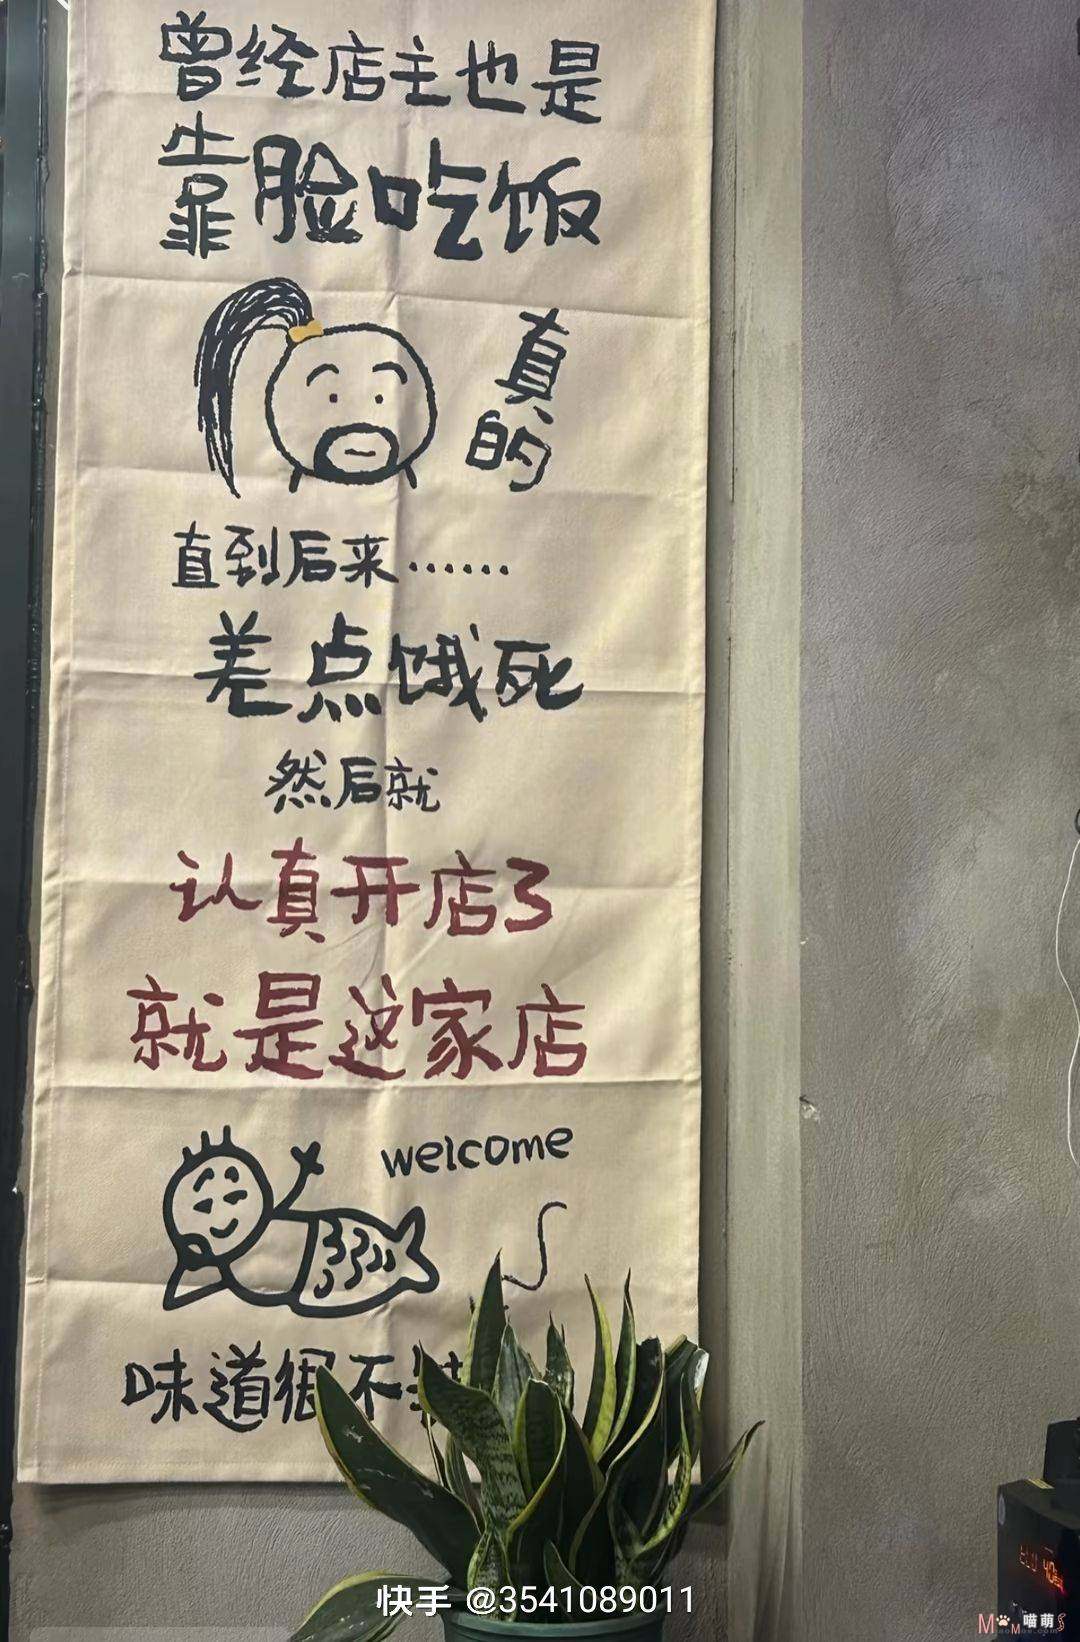 曾经店主也是
靠脸吃饭
真的
直到后来……
差点饿死
然后就
认真开店了
就是这家店
welcome
味道很不错
快手 @3541089011
喵萌